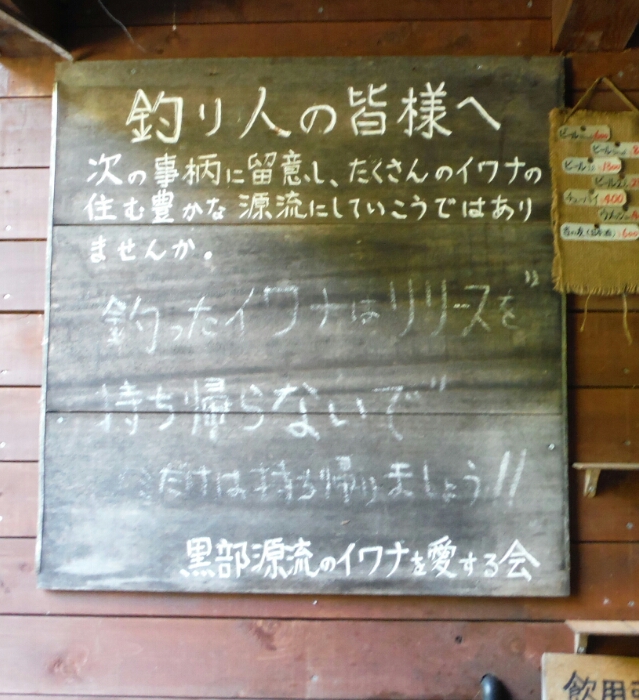 釣り人の皆様へ
次の事柄に留意し、たくさんのイワナの
住む豊かな源流にしていこうではあり
ませんか。
釣ったイワナはリリースを"
持ち帰らないで"
だけは持ち帰りましょう!!
黒部源流のイワナを愛する会
ビール
ビール
チューハイ 400
飲用